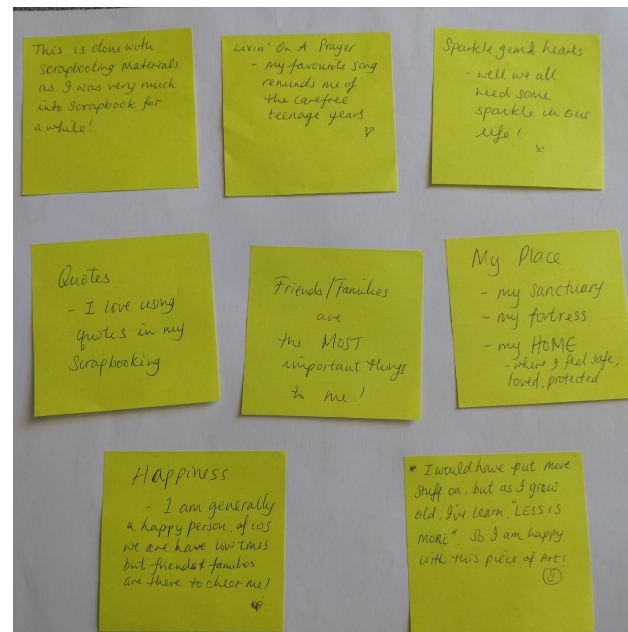 This is done with
scrapbooking materials
as I was very much
into scrapbook for
a while!
Livin' On A Prayer
- my favourite song
reminds me of
the carefree
teenage years
Sparkle gems & hearts
- well we all
need some
sparkle in our
life!
x
Quotes
- I love using
quotes in my
scrapbooking
Friends/Families
are
the MOST
important things
to me!
My Place
- my sanctuary
- my fortress
- my HOME
- where I feel safe,
loved, protected
Happiness
- I am generally
a happy person, of cos
we are have low times
but friends & families
are there to cheer me!
* I would have put more
stuff on, but as I grow
old, I've learn, "LESS IS
MORE". So I am happy
with this piece of Art!